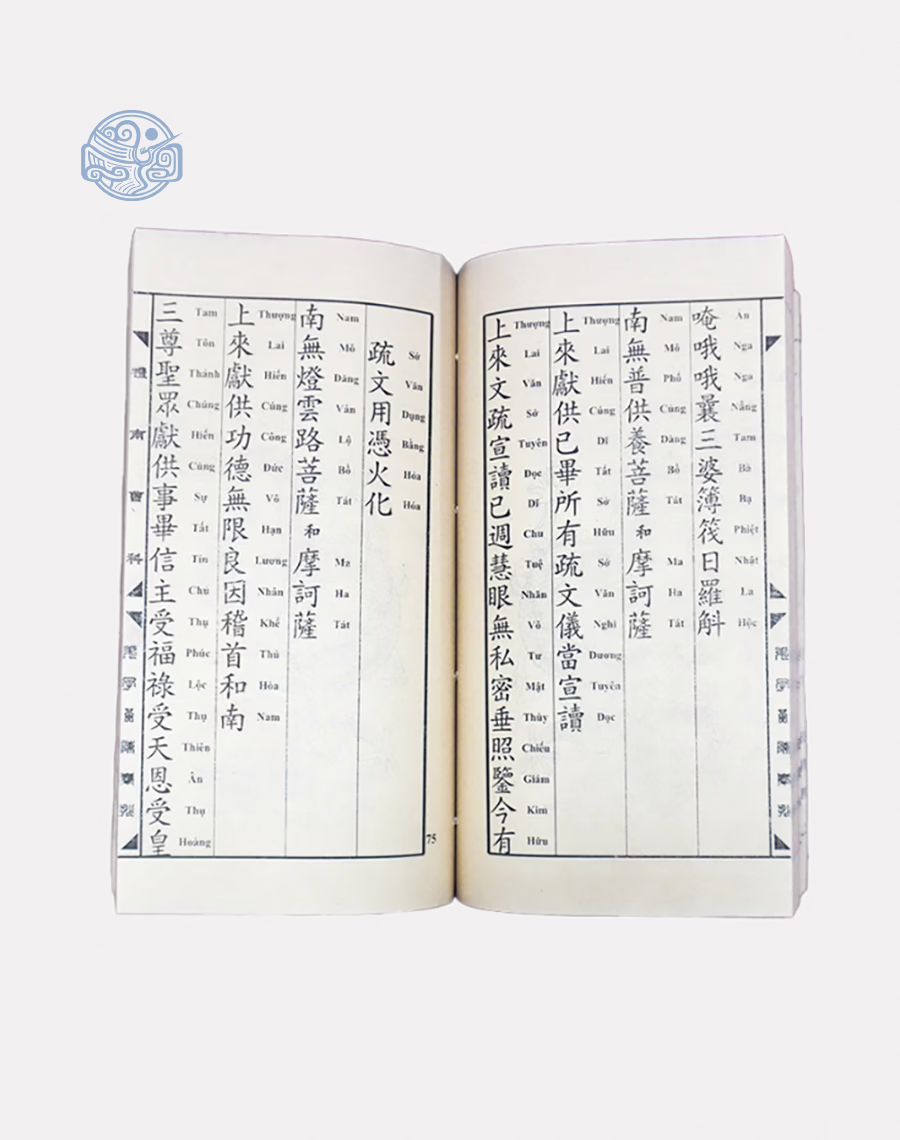 唵哦哦曩三婆簿筏日羅斛
Án Nga Nga Nẵng Tam Bà Bạ Phiệt Nhật La Hộc
南無普供養菩薩和摩訶薩
Nam Mô Phổ Cúng Dàng Bồ Tát Ma Ha Tát
上來獻供已畢所有疏文儀當宣讀
Thượng Lai Hiến Cúng Dĩ Tất Sở Hữu Sớ Văn Nghi Đương Tuyên Dọc
上來文疏宣讀已週慧眼無私密垂照鑒今有
Thượng Lai Văn Sớ Tuyên Dọc Dĩ Chu Tuệ Nhãn Vô Tư Mật Thùy Chiếu Giám Kim Hữu
疏文用憑火化
Sớ Văn Dụng Bằng Hỏa Hóa
南無燈雲路菩薩和摩訶薩
Nam Mô Dăng Vân Lộ Bồ Tát Ma Ha Tát
上來獻供功德無限良因稽首和南
Thượng Lai Hiến Cúng Công Đức Vô Hạn Lương Nhân Khể Thủ Hòa Nam
三尊聖眾獻供事畢信主受福祿受天恩受皇
Tam Tôn Thánh Chúng Hiến Cúng Sự Tất Tín Chủ Thụ Phúc Lộc Thụ Thiên Ân Thụ Hoàng
75
科